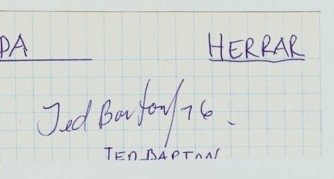 PA HERRAR
Ted Barton/76.
TED BARTON